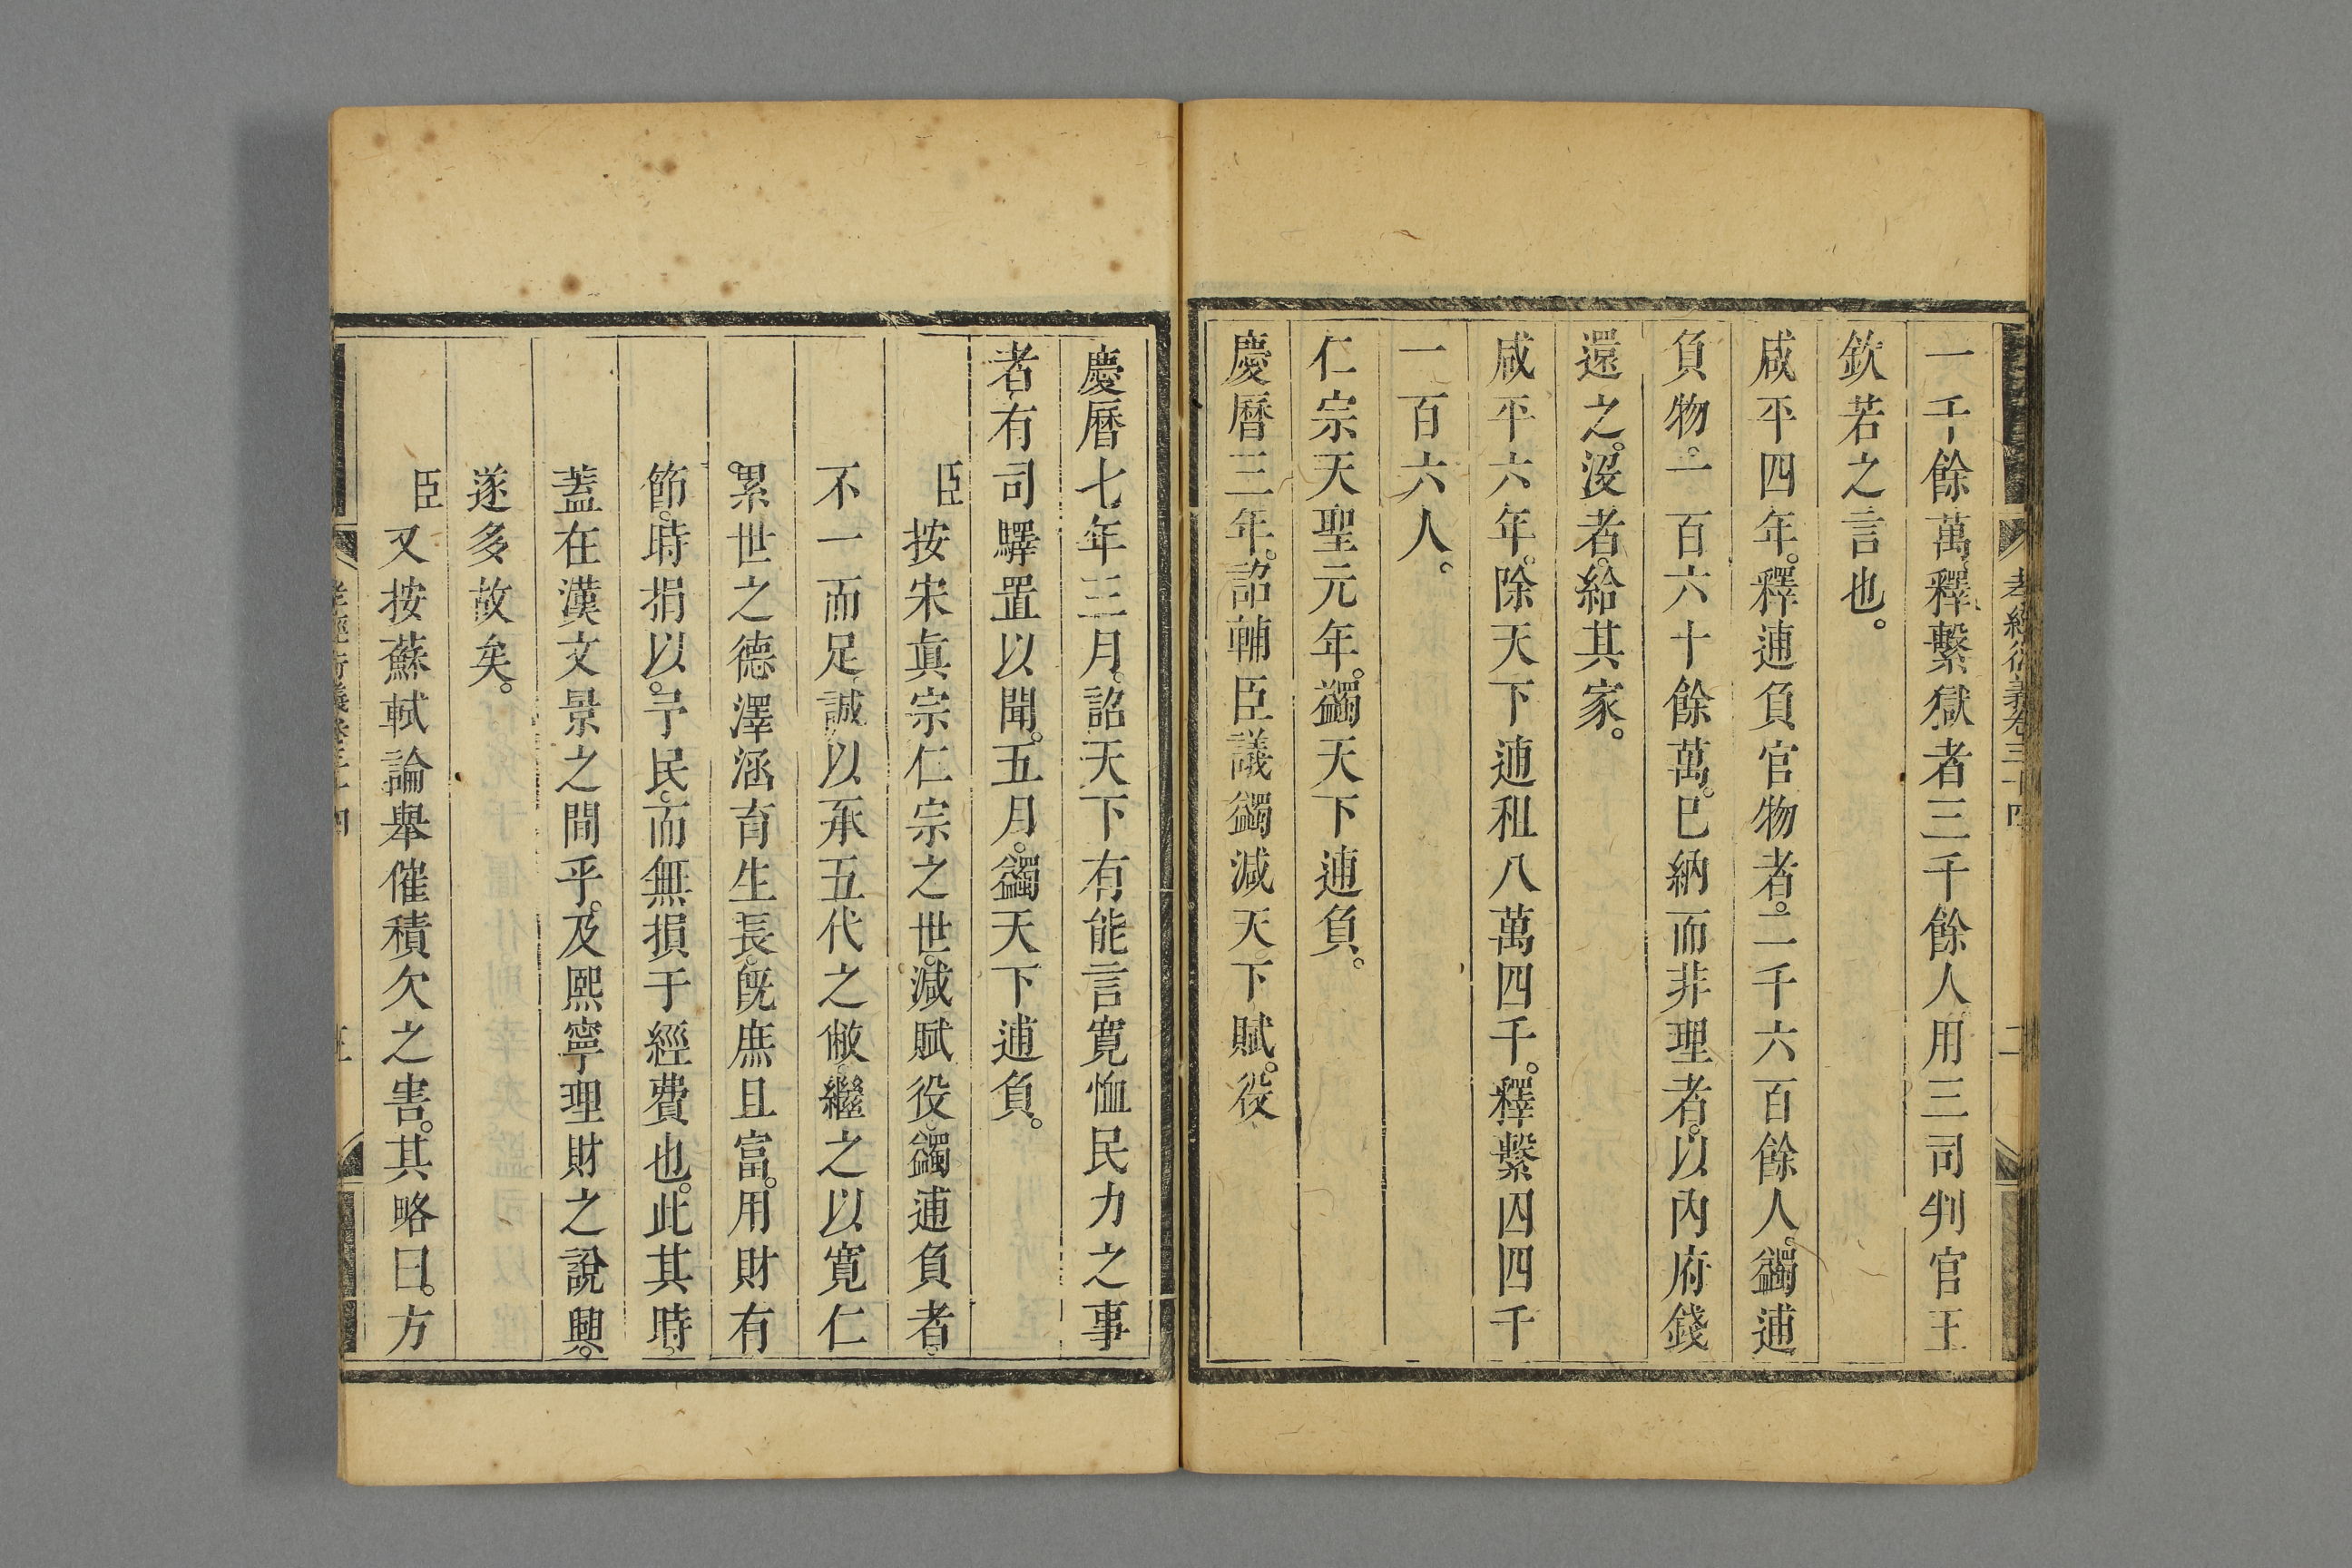 孝經衍義卷三十四 二
一千餘萬。釋繫獄者三千餘人用三司判官王
欽若之言也。
咸平四年。釋逋負官物者。二千六百餘人。蠲逋
負物。一百六十餘萬。已納而非理者。以內府錢
還之。沒者。給其家。
咸平六年。除天下逋租八萬四千。釋繫囚四千
一百六人。
仁宗天聖元年。蠲天下逋負。
慶曆三年。詔輔臣議蠲減天下賦。役
慶曆七年三月。詔天下有能言寬恤民力之事
者有司驛置以聞。五月。蠲天下逋負。
臣按宋眞宗仁宗之世。減賦役。蠲逋負者。
不一而足。誠以承五代之敝。繼之以寬仁。
累世之德澤涵育生長。旣庶且富。用財有
節。時捐以。予民。而無損于經費也。此其時。
蓋在漢文景之間乎。及熙寧理財之說興。
遂多故矣。
臣又按蘇軾論舉催積欠之害。其略曰。方
孝經衍義卷三十四